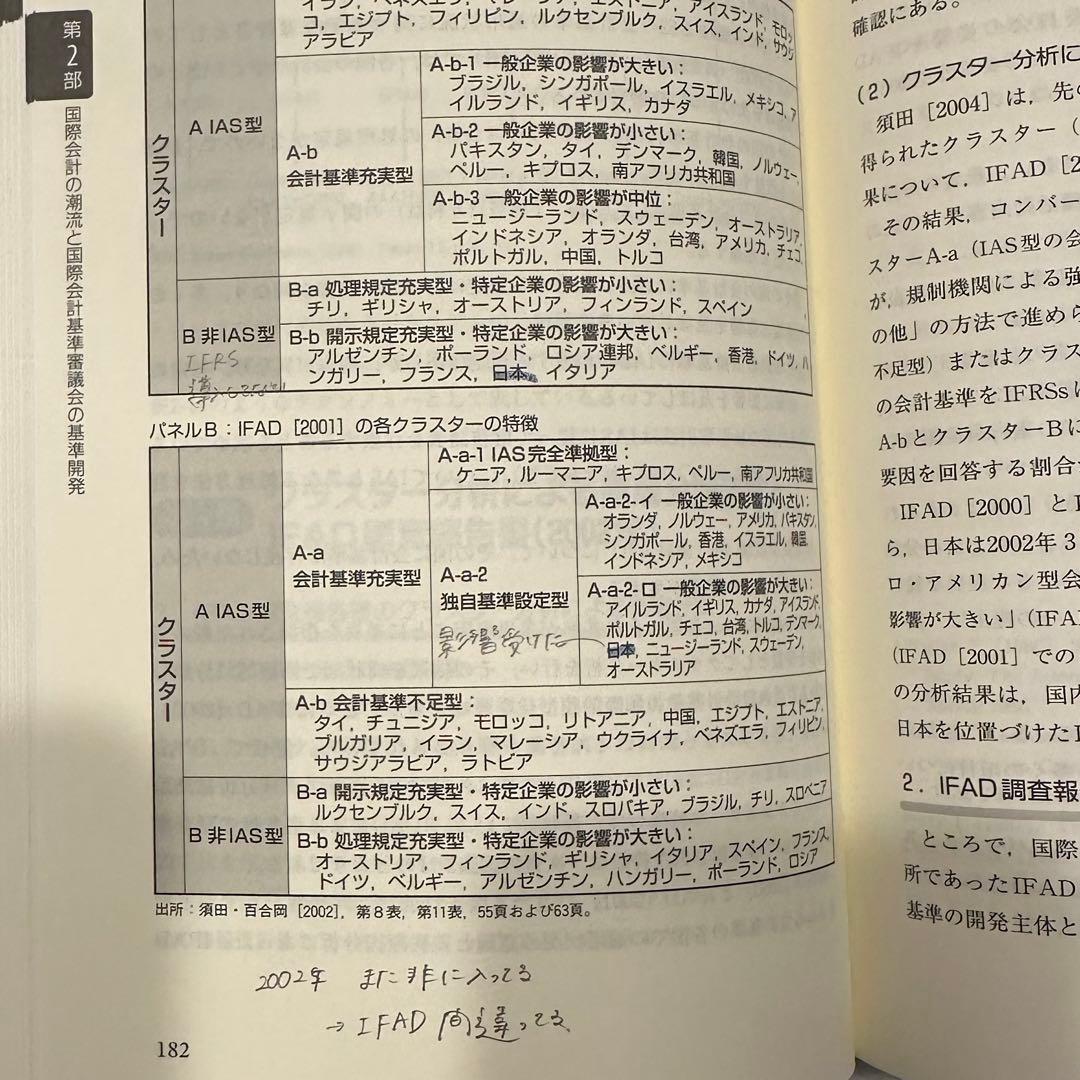 第2部
国際会計の潮流と国際会計基準審議会の基準開発
コ，エジプト，フィリピン，ルクセンブルク，スイス，インド，サウジ
アラビア
クラスター
A IAS型
A-b
会計基準充実型
A-b-1 一般企業の影響が大きい：
ブラジル，シンガポール，イスラエル，メキシコ，ア
イルランド，イギリス，カナダ
A-b-2 一般企業の影響が小さい：
パキスタン，タイ，デンマーク，韓国，ノルウェー，
ペルー，キプロス，南アフリカ共和国
A-b-3 一般企業の影響が中位：
ニュージーランド，スウェーデン，オーストラリア，
インドネシア，オランダ，台湾，アメリカ，チェコ，
ポルトガル，中国，トルコ
B 非IAS型
IFRS
B-a 処理規定充実型・特定企業の影響が小さい：
チリ，ギリシャ，オーストリア，フィンランド，スペイン
B-b 開示規定充実型・特定企業の影響が大きい：
アルゼンチン，ポーランド，ロシア連邦，ベルギー，香港，ドイツ，ハ
ンガリー，フランス，日本，イタリア
パネルB：IFAD［2001］の各クラスターの特徴
クラスター
A IAS型
A-a
会計基準充実型
A-a-1 IAS完全準拠型：
ケニア，ルーマニア，キプロス，ペルー，南アフリカ共和国
A-a-2
独自基準設定型
影響受けた
A-a-2-イ 一般企業の影響が小さい：
オランダ，ノルウェー，アメリカ，パキスタン，
シンガポール，香港，イスラエル，韓国，
インドネシア，メキシコ
A-a-2-ロ 一般企業の影響が大きい：
アイルランド，イギリス，カナダ，アイスランド，
ポルトガル，チェコ，台湾，トルコ，デンマーク，
日本，ニュージーランド，スウェーデン，
オーストラリア
A-b 会計基準不足型：
タイ，チュニジア，モロッコ，リトアニア，中国，エジプト，エストニア，
ブルガリア，イラン，マレーシア，ウクライナ，ベネズエラ，フィリピン，
サウジアラビア，ラトビア
B 非IAS型
B-a 開示規定充実型・特定企業の影響が小さい：
ルクセンブルク，スイス，インド，スロバキア，ブラジル，チリ，スロベニア
B-b 処理規定充実型・特定企業の影響が大きい：
オーストリア，フィンランド，ギリシャ，イタリア，スペイン，フランス，
ドイツ，ベルギー，アルゼンチン，ハンガリー，ポーランド，ロシア
出所：須田・百合岡［2002］，第8表，第11表，55頁および63頁。
2002年 まだ非に入ってる
→ IFAD 間違ってる
182
確認にある。
(2) クラスター分析に
須田［2004］は，先の
得られたクラスター（
果について，IFAD［2
その結果，コンバー
スターA-a（IAS型の会
が，規制機関による強
の他」の方法で進めら
不足型）またはクラス
の会計基準をIFRSsに
A-bとクラスターBに
要因を回答する割合
IFAD［2000］と I
ら，日本は2002年3
ロ・アメリカン型会
影響が大きい」（IFA
（IFAD［2001］での
の分析結果は，国内
日本を位置づけたI
2．IFAD調査報
ところで，国際
所であったIFAD
基準の開発主体と